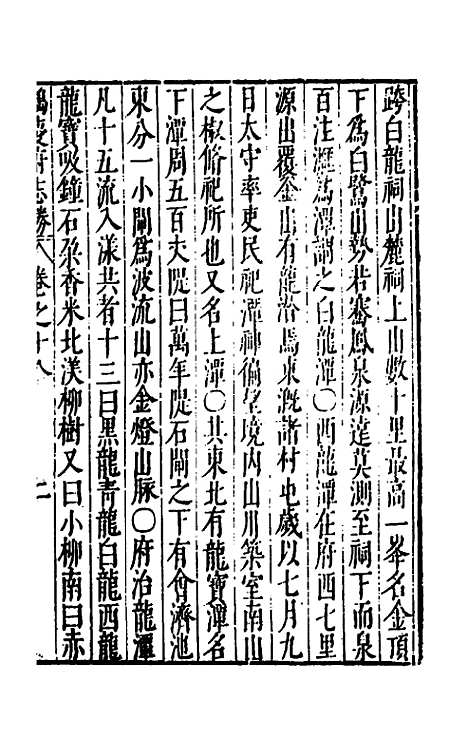 跨白龍祠山麓祠上山數十里最高一峯名金頂
下爲白鷺山勢若翥鳳泉源遠莫測至祠下而泉
百注滙爲潭謂之白龍潭〇西龍潭在府西七里
源出覆金山有龍治焉東漑諸村屯歲以七月九
日太守率吏民祀潭神徧望境内山川築室南山
之椒脩祀所也又名上潭〇其東北有龍寶潭名
下潭周五百丈隄曰萬年隄石閘之下有會濟池
東分一小閘爲波流山亦金燈山脉〇府治龍潭
凡十五流入漾共者十三曰黑龍青龍白龍西龍
龍寶吸鐘石朶香米北渼柳樹又曰小柳南曰赤
慶府志勝 卷之十八 二